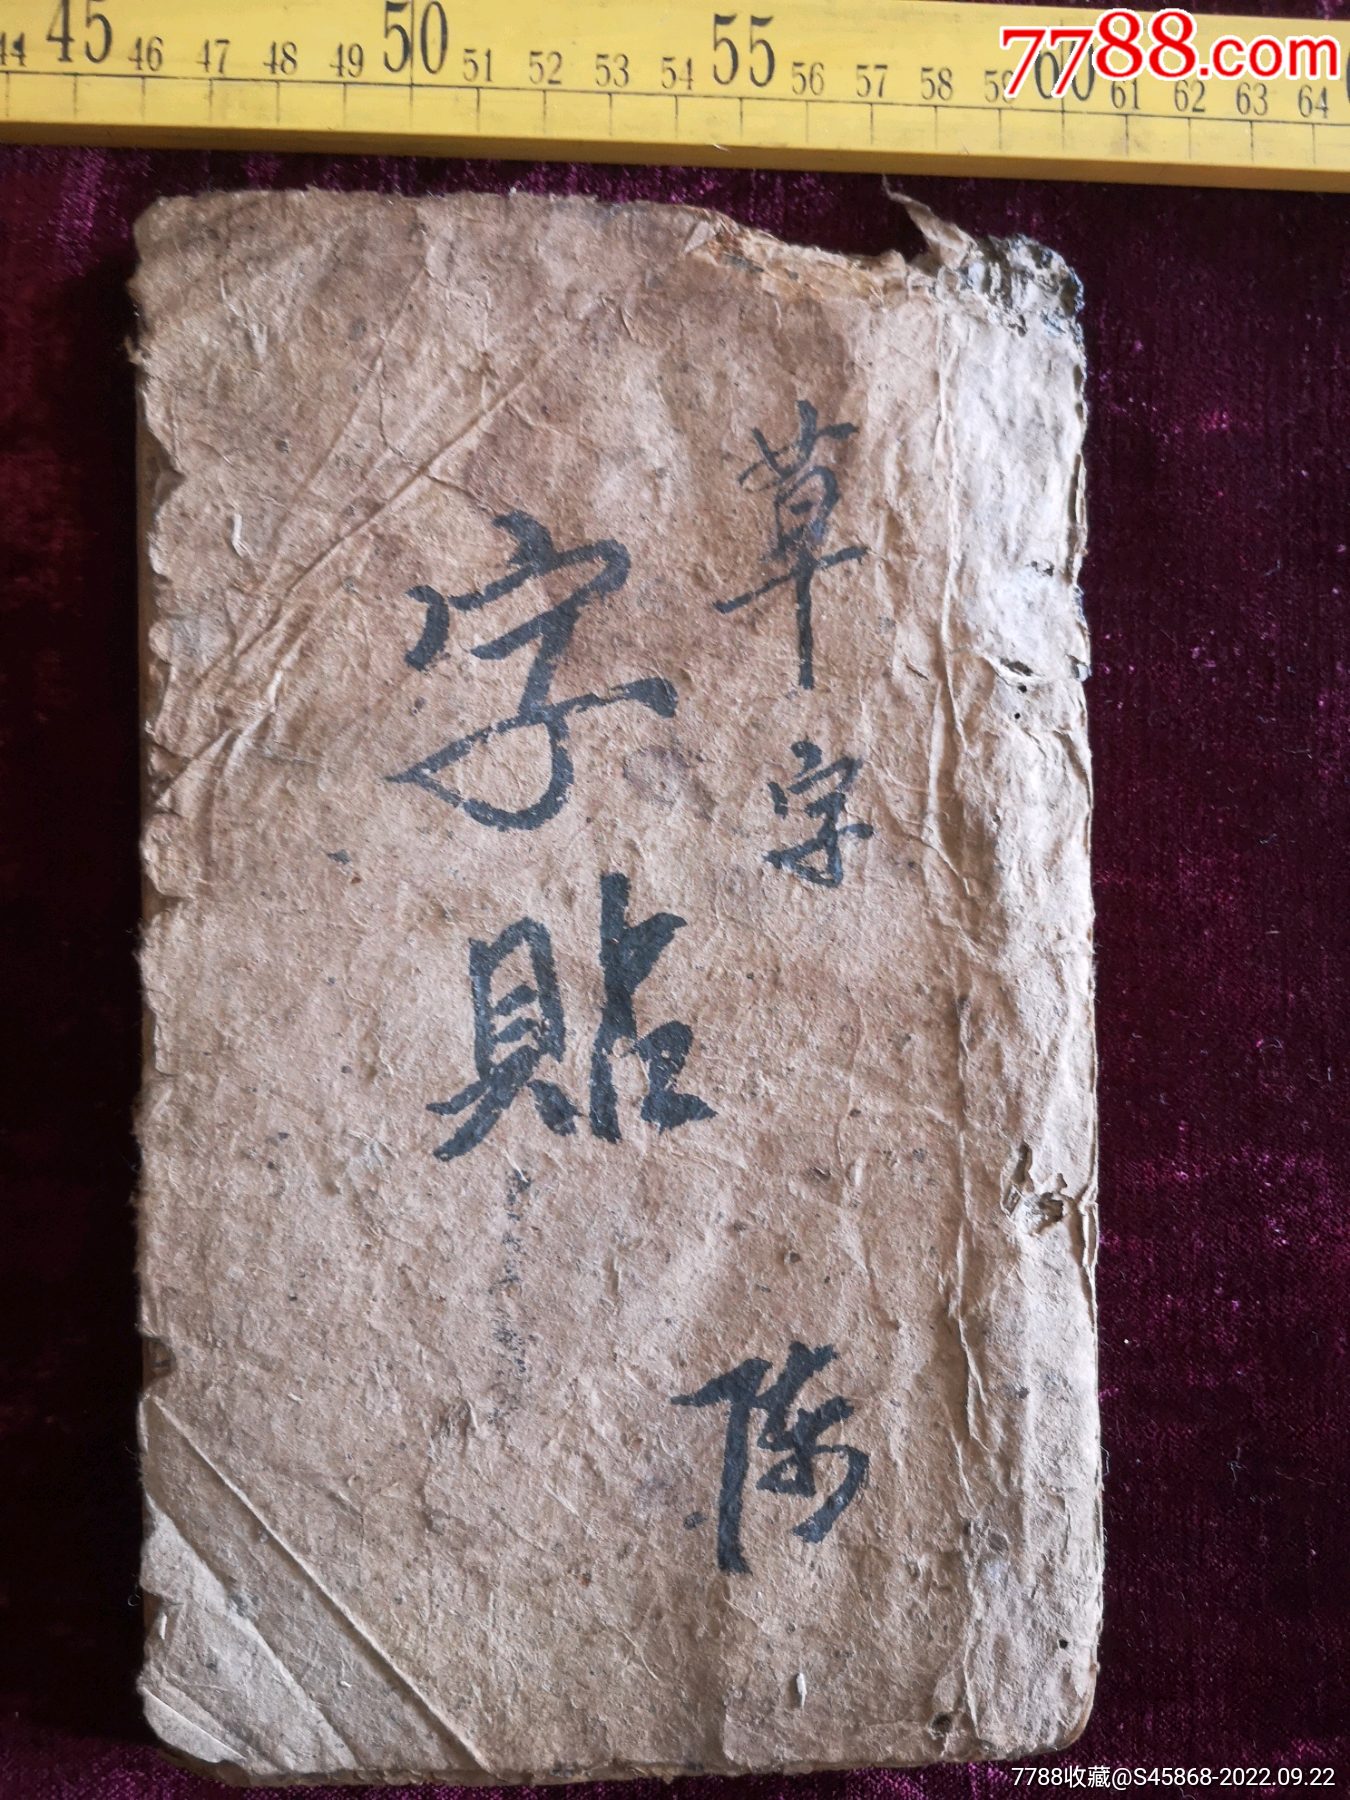 44 45 46 47 48 49 50 51 52 53 54 55 56 57 58 59 60 61 62 63 64
7788.com
草字
字貼
陈
7788收藏@S45868-2022.09.22